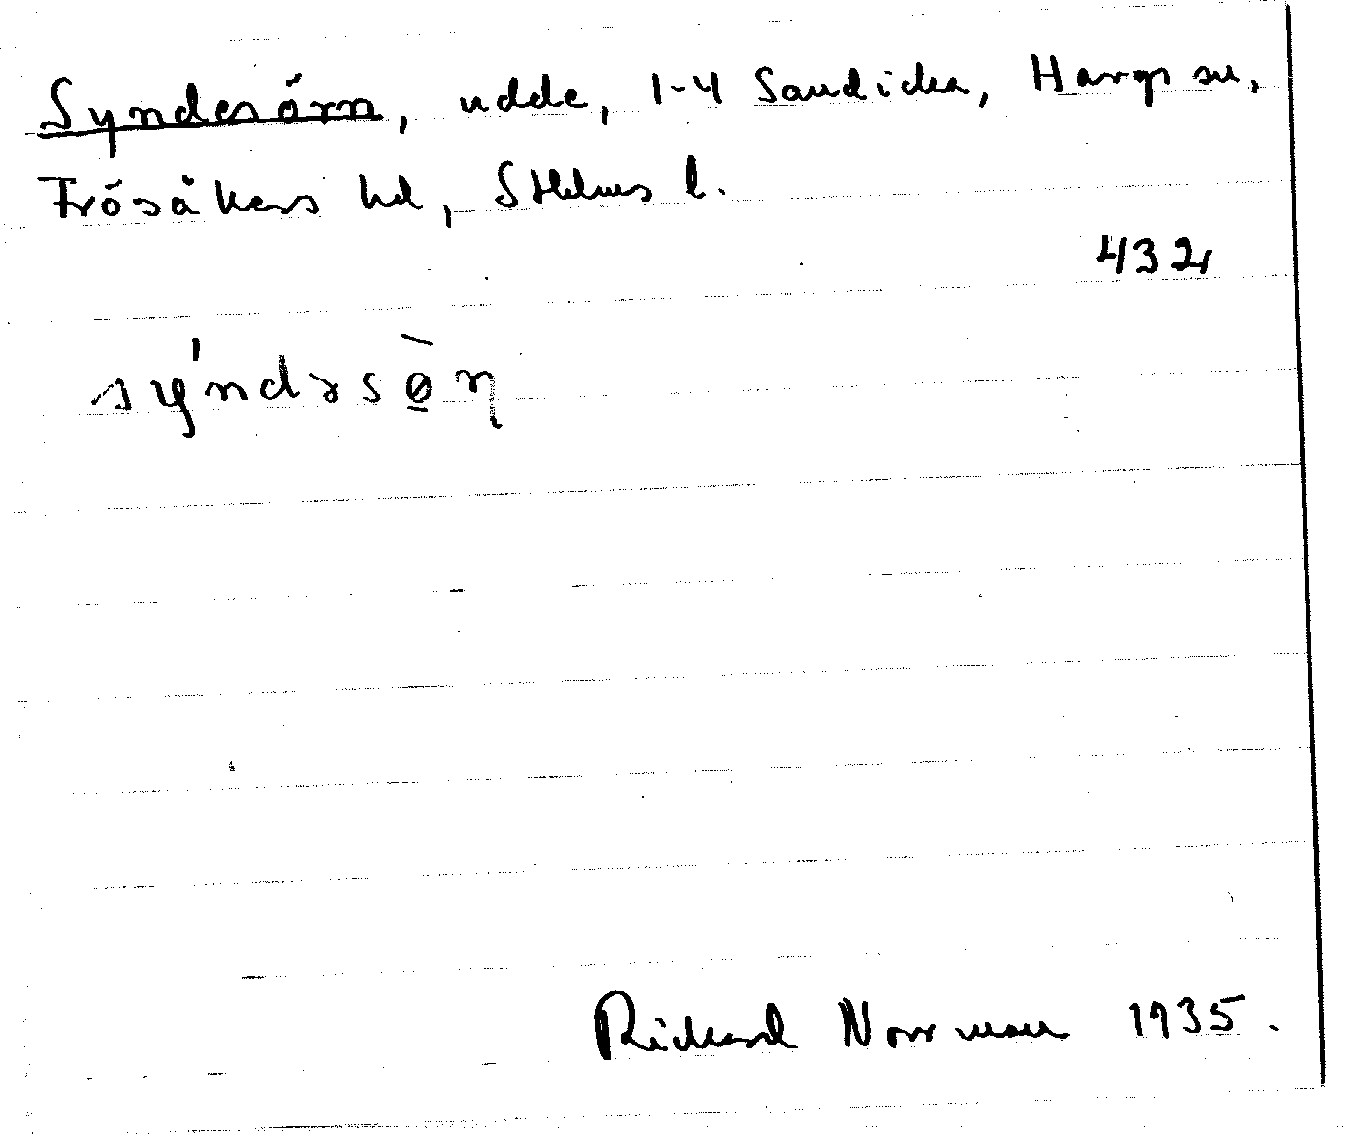 Syndesörn, udde, 1-4 Sandicka, Hargs sn,
Frösåkers hd, Sthlms l.
432
sýndəsø̀n
Richard Norrman 1935.